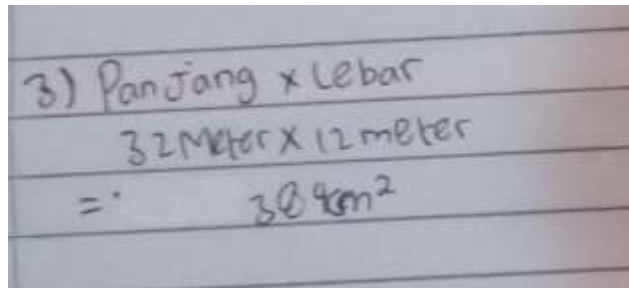 3) Panjang x Lebar
32 Meter x 12 meter
= 384cm²